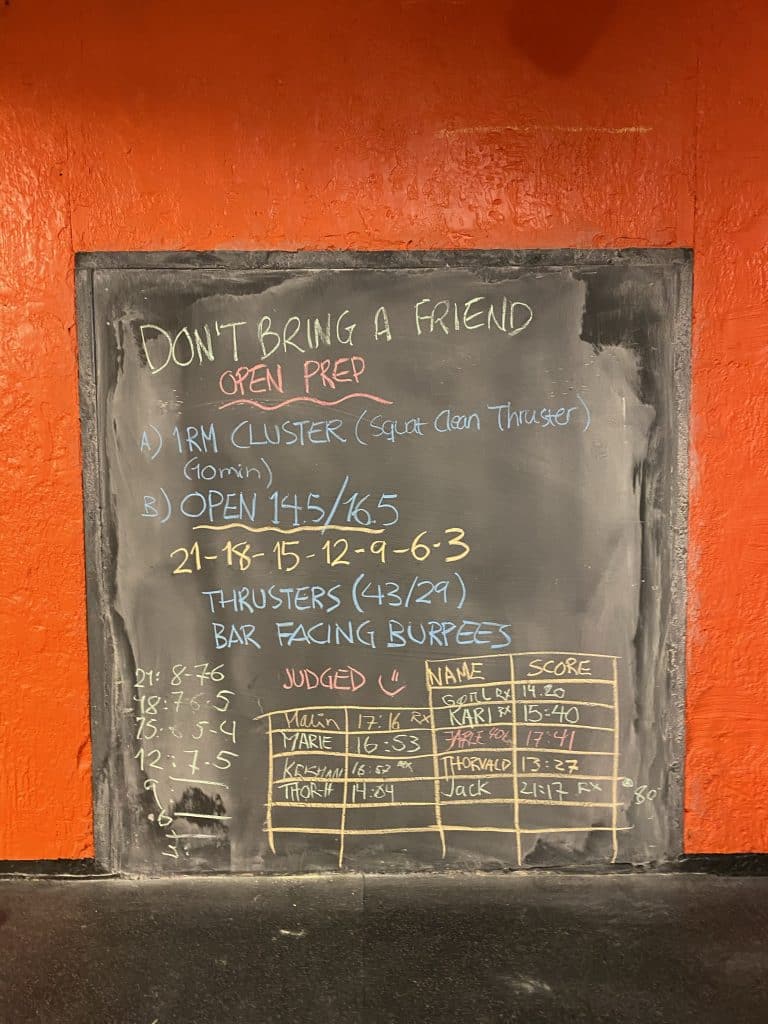 DON'T BRING A FRIEND
OPEN PREP
A) 1RM CLUSTER (Squat Clean Thruster)
(10min)
B) OPEN 14.5/16.5
21-18-15-12-9-6-3
THRUSTERS (43/29)
BAR FACING BURPEES
JUDGED
21: 8-7-6
18: 7-6-5
15: 6 5-4
12: 7-5
9:
Malin 17:16 RX
MARIE 16:53
KRISHAN 16:57 RX
THOR-H 14:04
NAME SCORE
RX 14.20
KARI RX 15:40
17:41
THORVALD 13:27
Jack 21:17 RX